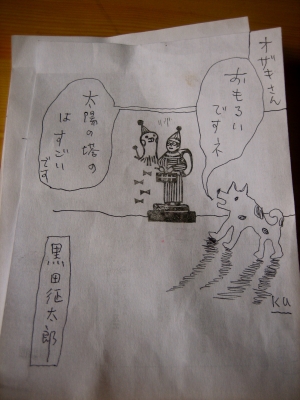 オザキさん
おもろい
ですネ
太陽の塔の
はすごい
です
黒田征太郎
KU